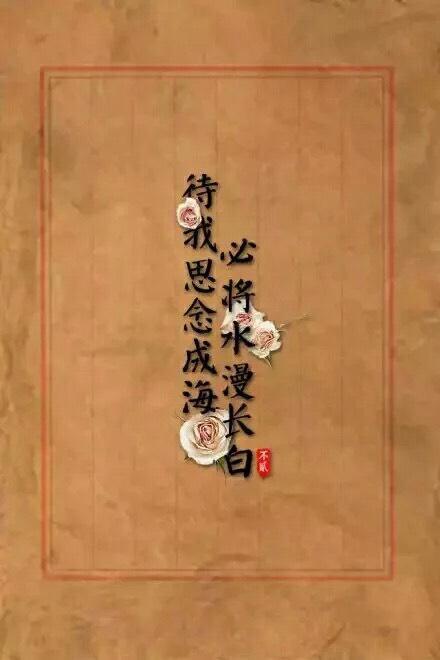 待我思念成海
必将水漫长白
不贰